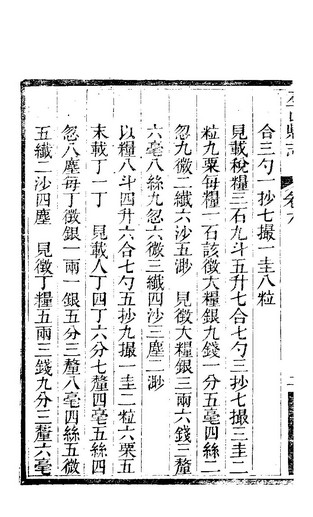 合三勺一抄七撮一圭八粒
見載稅糧三石九斗五升七合七勺三抄七撮三圭二
粒九粟每糧一石該徵大糧銀九錢一分五毫四絲二
忽九微二纖六沙五渺　見徵大糧銀三兩六錢三釐
六毫八絲九忽六微三纖四沙三塵二渺
以糧八斗四升六合七勺五抄九撮一圭二粒六粟五
末載丁一丁　見載人丁四丁六分七釐四毫五絲四
忽八塵每丁徵銀一兩一銀五分三釐八毫四絲五微
五纖二沙四塵　見徵丁糧五兩三錢九分三釐六毫